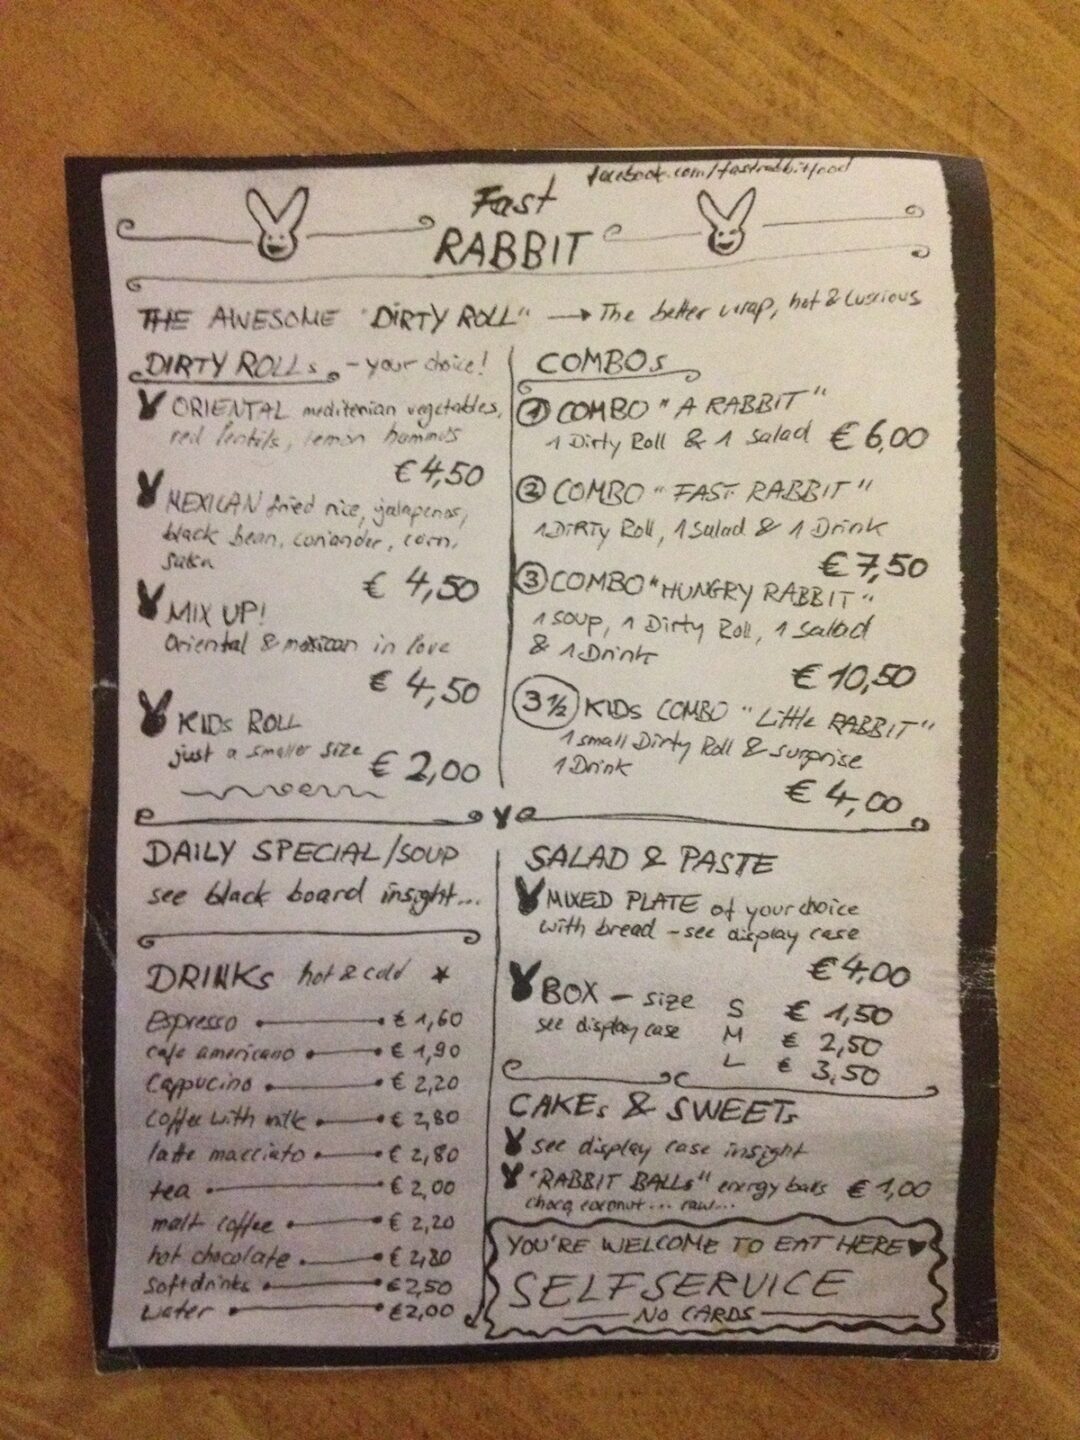 facebook.com/fastrabbitfood
Fast
RABBIT
THE AWESOME "DIRTY ROLL" → The better wrap, hot & Luscious
DIRTY ROLLs - your choice!
ORIENTAL mediterian vegetables,
red lentils, lemon hummus
€ 4,50
MEXICAN fried rice, jalapenos,
black bean, coriander, corn,
salsa
€ 4,50
MIX UP!
Oriental & mexican in love
€ 4,50
KIDs ROLL
just a smaller size
€ 2,00
COMBOs
① COMBO "A RABBIT"
1 Dirty Roll & 1 Salad € 6,00
② COMBO "FAST RABBIT"
1 DIRTY Roll, 1 Salad & 1 Drink
€ 7,50
③ COMBO "HUNGRY RABBIT"
1 soup, 1 Dirty Roll, 1 salad
& 1 Drink
€ 10,50
3 ½ KIDs COMBO "Little RABBIT"
1 small Dirty Roll & surprise
1 Drink
€ 4,00
DAILY SPECIAL/SOUP
see black board insight...
DRINKs hot & cold *
Espresso € 1,60
cafe americano € 1,90
Cappucino € 2,20
Coffee with milk € 2,80
latte macciato € 2,80
tea € 2,00
malt coffee € 2,20
hot chocolate € 2,80
Softdrinks € 2,50
Water € 2,00
SALAD & PASTE
MIXED PLATE of your choice
with bread - see display case
€ 4,00
BOX - size S € 1,50
see display case M € 2,50
L € 3,50
CAKEs & SWEETs
see display case insight
"RABBIT BALLs" energy balls € 1,00
choco coconut... raw...
YOU'RE WELCOME TO EAT HERE ♥
SELFSERVICE
NO CARDS